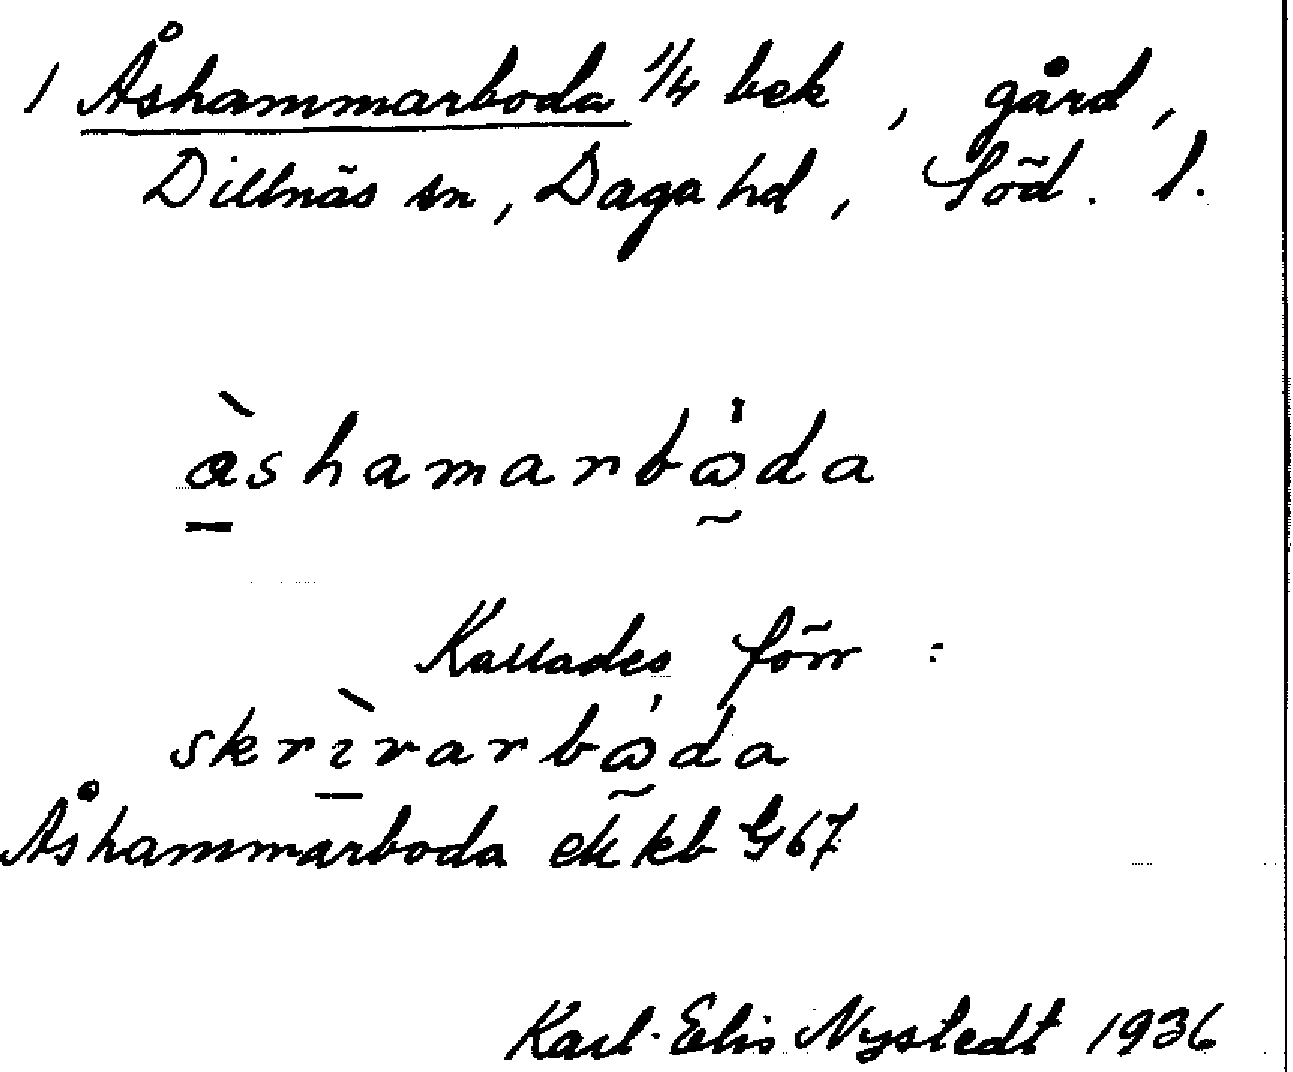 1 Åshammarboda 1/4 bek, gård,
Dillnäs sn, Daga hd, Söd. l.
àshamarbω̇da
Kallades förr:
skrìvarbω̇da
Åshammarboda ek kb G 67
Karl-Elis Nystedt 1936